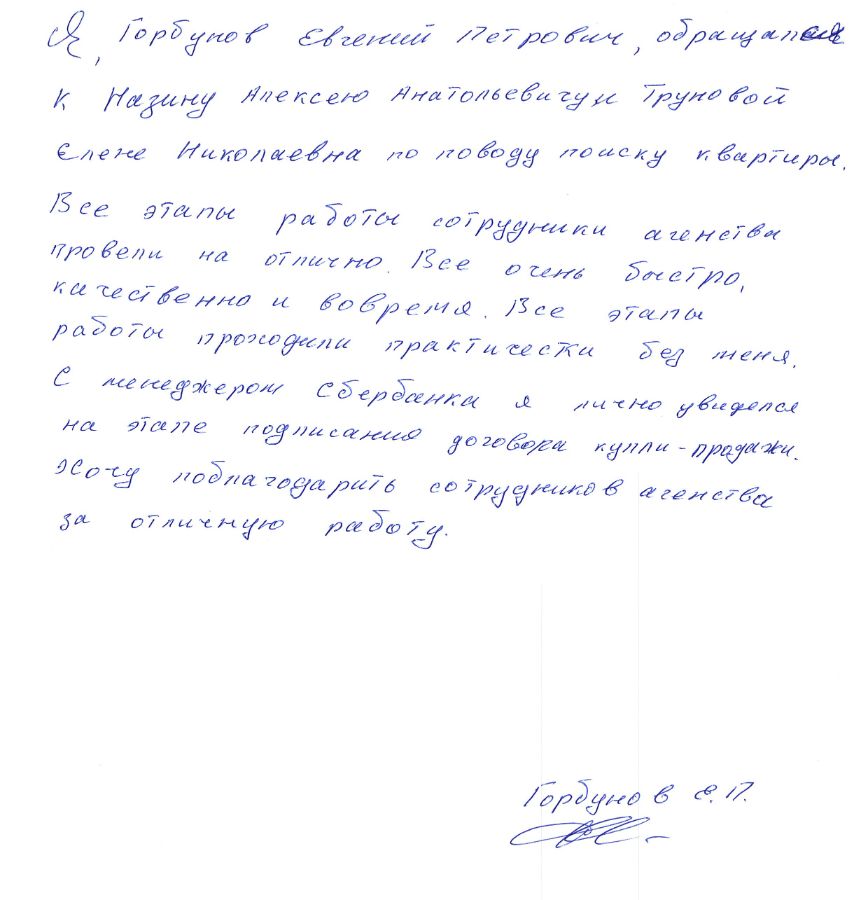 Я, Горбунов Евгений Петрович, обращался
к Назину Алексею Анатольевичу и Труновой
Елене Николаевна по поводу поиску квартиры.
Все этапы работы сотрудники агенства
провели на отлично. Все очень быстро,
качественно и вовремя. Все этапы
работы проходили практически без меня.
С менеджером Сбербанка я лично увиделся
на этапе подписания договора купли-продажи.
Хочу поблагодарить сотрудников агенства
за отличную работу.
Горбунов Е.П.